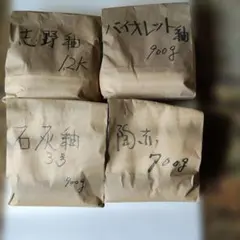 志野釉
1.2K
バイオレット釉
900g
石灰釉
3号
900g
陶赤
700g